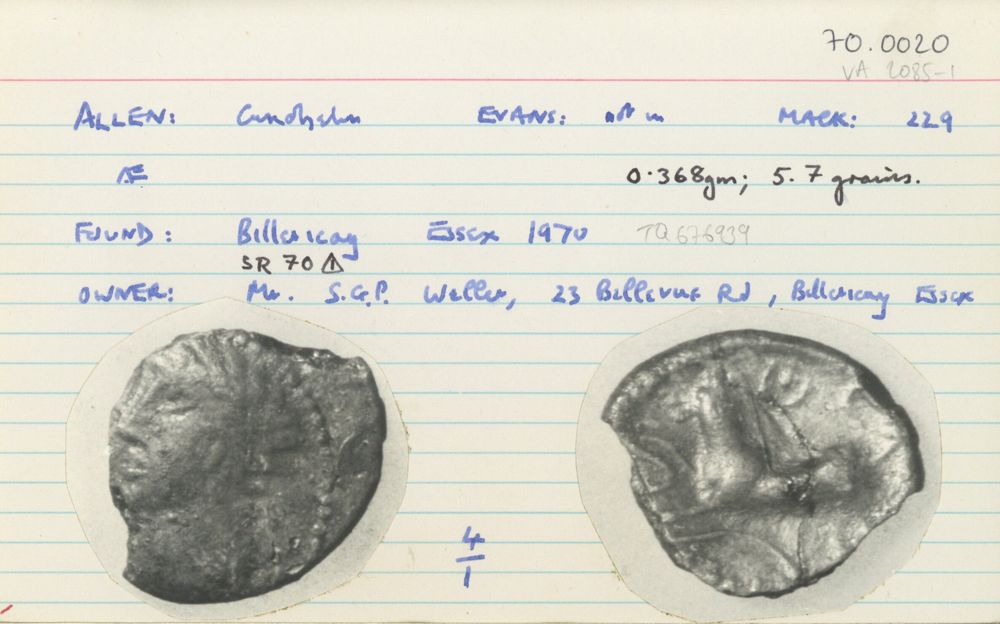 70.0020
VA 2085-1
ALLEN: Cunobelin EVANS: not in MACK: 229
Æ 0.368gm; 5.7 grains.
FOUND: Billericay Essex 1970 TQ 676939
SR 70
OWNER: Mr. S.G.P. Weller, 23 Bellevue Rd, Billericay Essex
4
1